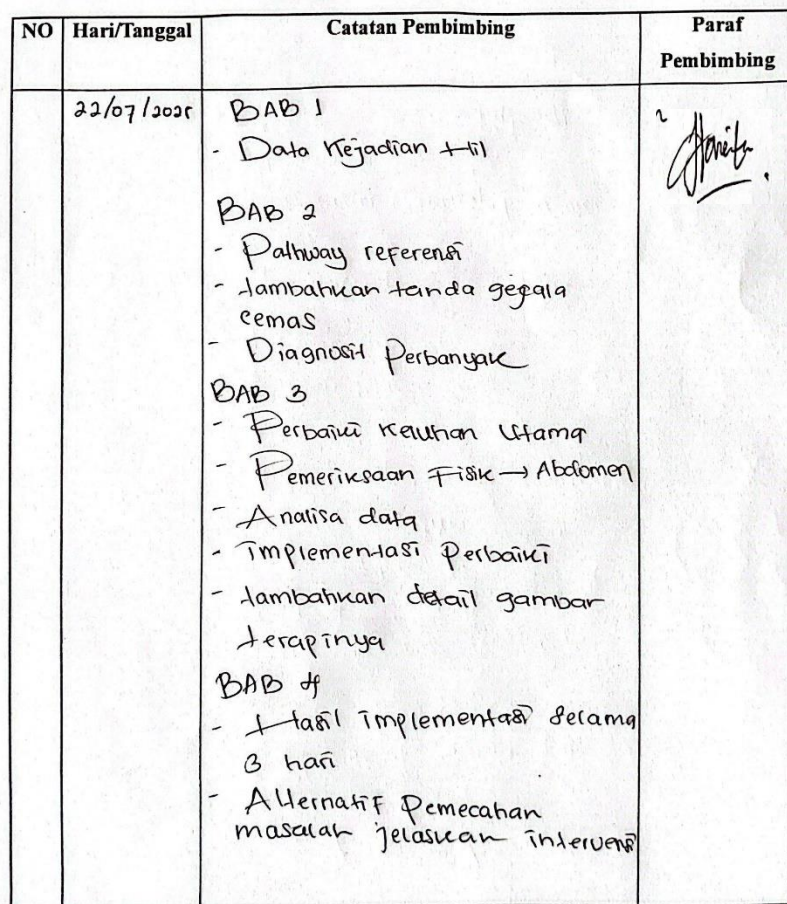 NO Hari/Tanggal Catatan Pembimbing Paraf
Pembimbing
22/07/2025 BAB 1
- Data Kejadian Hil
BAB 2
- Pathway referensi
- tambahkan tanda gejala
cemas
- Diagnosit Perbanyak
BAB 3
- Perbaiki Keluhan Utama
- Pemeriksaan Fisik → Abdomen
- Analisa data
- implementasi Perbaiki
- tambahkan detail gambar
terapinya
BAB 4
- Hasil implementasi selama
3 hari
- Alternatif Pemecahan
masalah jelaskan intervensi